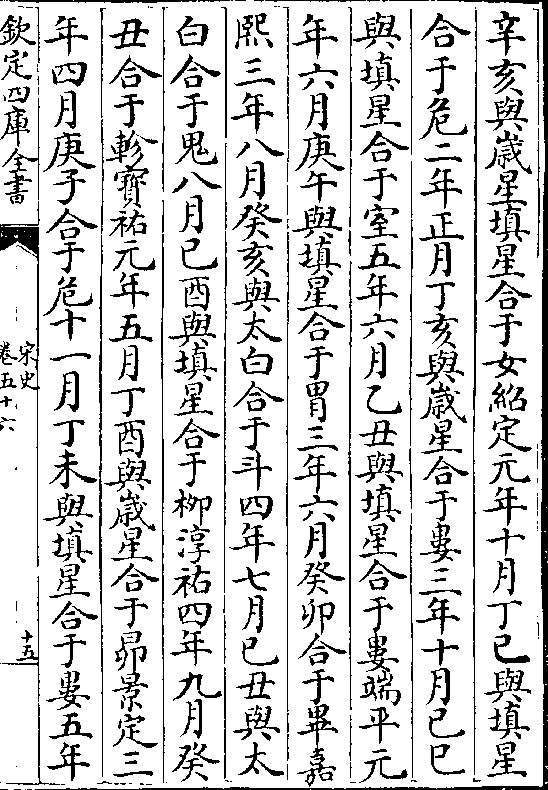 辛亥與嵗星填星合于女紹定元年十月丁已與填星
合于危二年正月丁亥與嵗星合于婁三年十月已巳
與填星合于室五年六月乙丑與填星合于婁端平元
年六月庚午與填星合于胃三年六月癸卯合于畢嘉
熙三年八月癸亥與太白合于斗四年七月已丑與太
白合于鬼八月已酉與填星合于柳淳祐四年九月癸
丑合于軫寳祐元年五月丁酉與嵗星合于昴景定三
年四月庚子合于危十一月丁未與填星合于婁五年
欽定四庫全書
宋史
卷五十六
十五